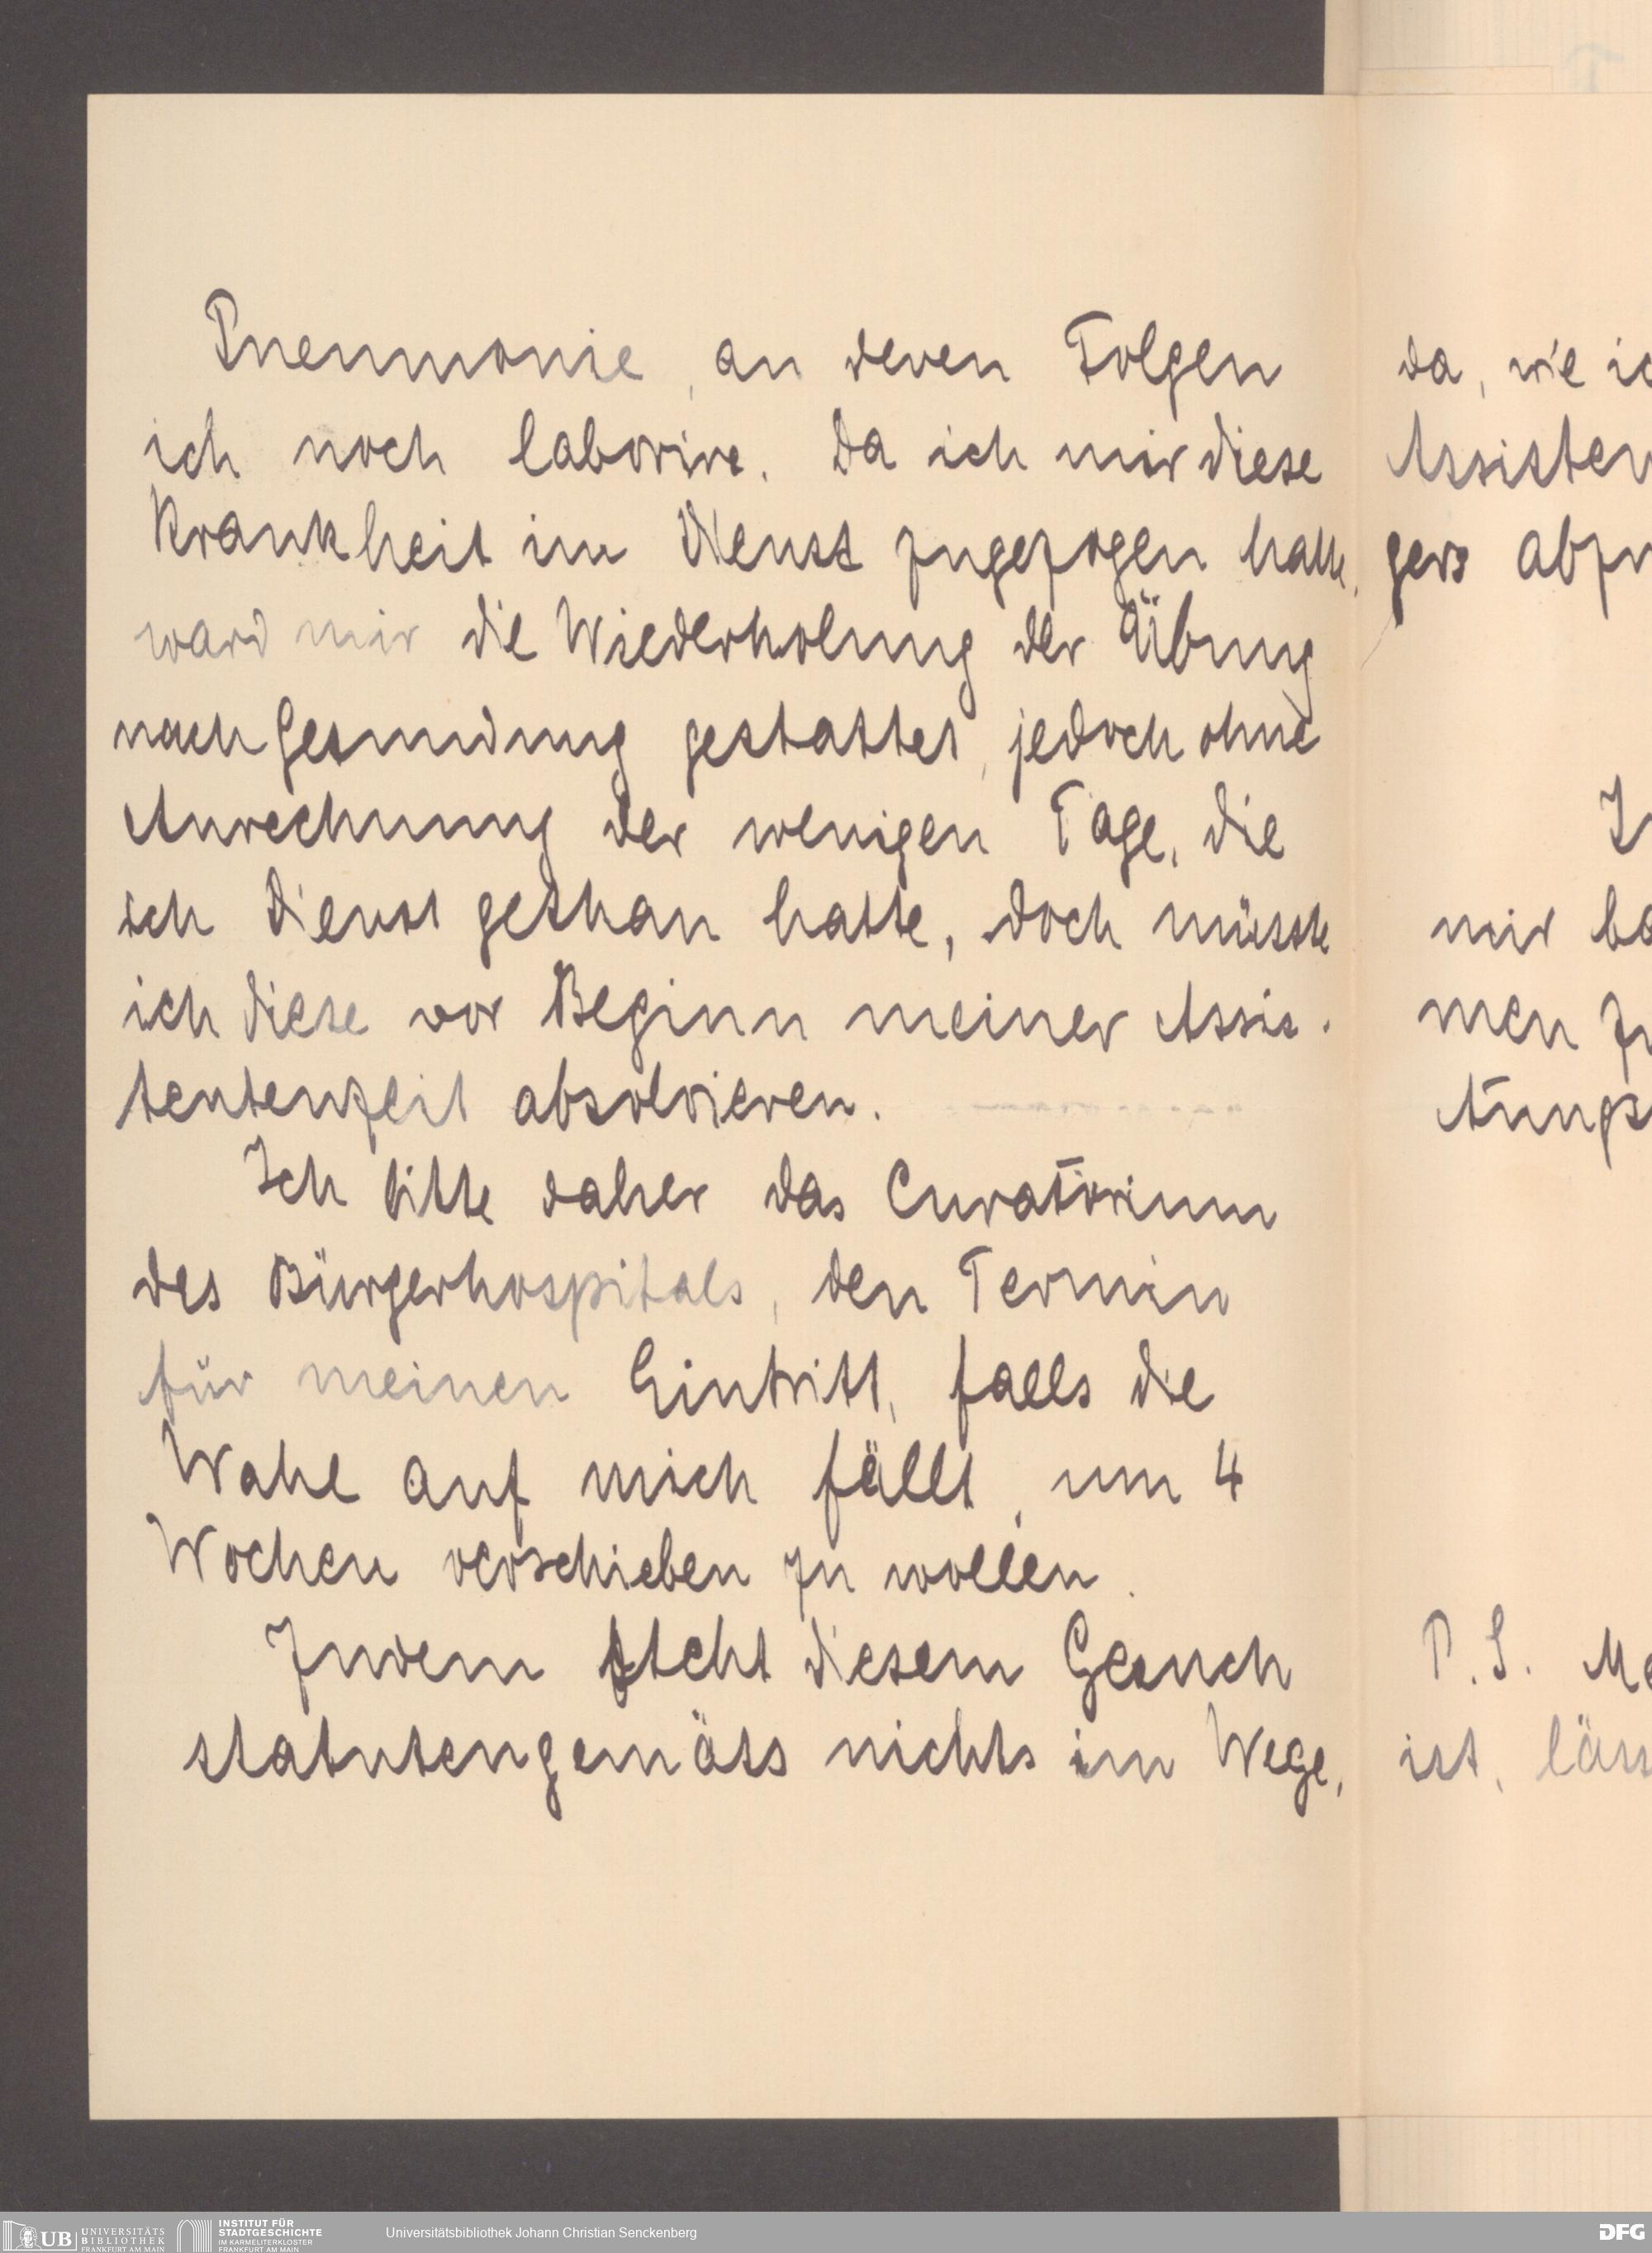 Pneumonie, an deren Folgen
ich noch laborire. Da ich mir diese
Krankheit im Dienst zugezogen hatte,
ward mir die Wiederholung der Übung
nach Gesundung gestattet, jedoch ohne
Anrechnung der wenigen Tage, die
ich Dienst gethan hatte, doch müsste
ich diese vor Beginn meiner Assis-
tentenzeit absolvieren.
Ich bitte daher das Curatorium
des Bürgerhospitals, den Termin
für meinen Eintritt, falls die
Wahl auf mich fällt, um 4
Wochen verschieben zu wollen.
Zudem steht diesem Gesuch
statutengemäss nichts im Wege,
da, wie ic
Assisten
gers abzu
mir ba
men zu
P.S. Me
ist, läss
UB UNIVERSITÄTS
BIBLIOTHEK
FRANKFURT AM MAIN
INSTITUT FÜR
STADTGESCHICHTE
IM KARMELITERKLOSTER
FRANKFURT AM MAIN
Universitätsbibliothek Johann Christian Senckenberg
DFG